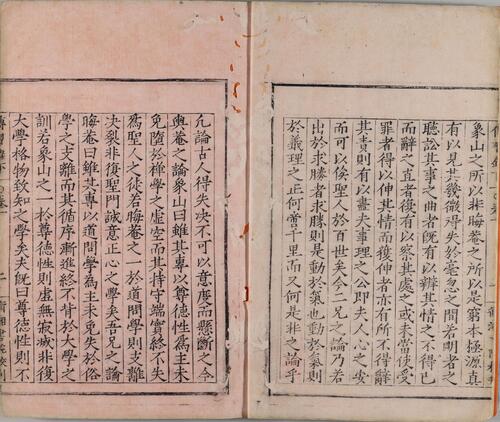 象山之所以非晦菴之所以是窮本極源真
有以見其幾微得失於毫忽之間若明者之
聽訟其事之曲者旣有以辨其情之不得已
而辭之直者復有以察其處之或未當使受
罪者得以伸其情而獲伸者亦有所不得辭
其責則有以盡夫事理之公即夫人心之安
而可以俟聖人於百世矣今二兄之論乃若
出於求勝者求勝則是動於氣也動於氣則
於義理之正何啻千里而又何是非之論乎
凡論古人得失决不可以意度而懸斷之今
輿菴之論象山曰雖其專以尊德性爲主未
免墮於禪學之虛空而其持守端實終不失
爲聖人之徒若晦菴之一於道問學則支離
决裂非復聖門誠意正心之學矣吾兄之論
晦菴曰雖其專以道問學爲主未免失於俗
學之支離而其循序漸進終不背於大學之
訓若象山之一於尊德性則虛無寂滅非復
大學格物致知之學矣夫旣曰尊德性則不
二